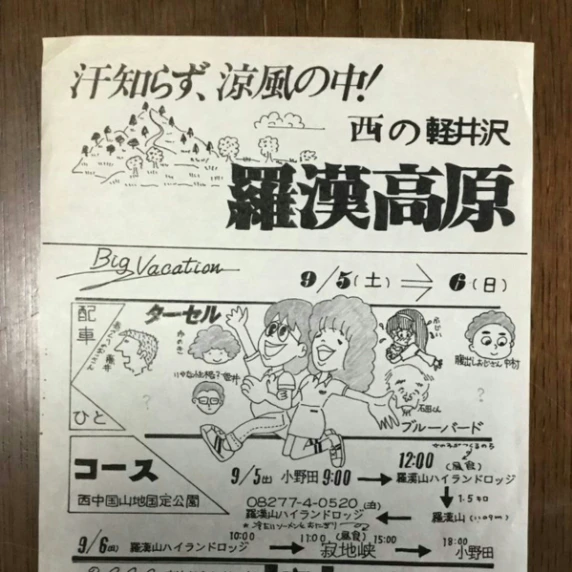 汗知らず、涼風の中!
西の軽井沢
羅漢高原
Big Vacation
9/5(土) ⇒ 6(日)
配車
ターセル
ブルーバード
ひと
コース
西中国山地国定公園
9/5(土) 小野田 9:00 → 12:00(昼食) 羅漢山ハイランドロッジ
↓ 1.5キロ
08277-4-0520(泊)
羅漢山ハイランドロッジ ← 羅漢山
9/6(日) 羅漢山ハイランドロッジ 10:00 → 11:00(昼食) 寂地峡 15:00 → 18:00 小野田